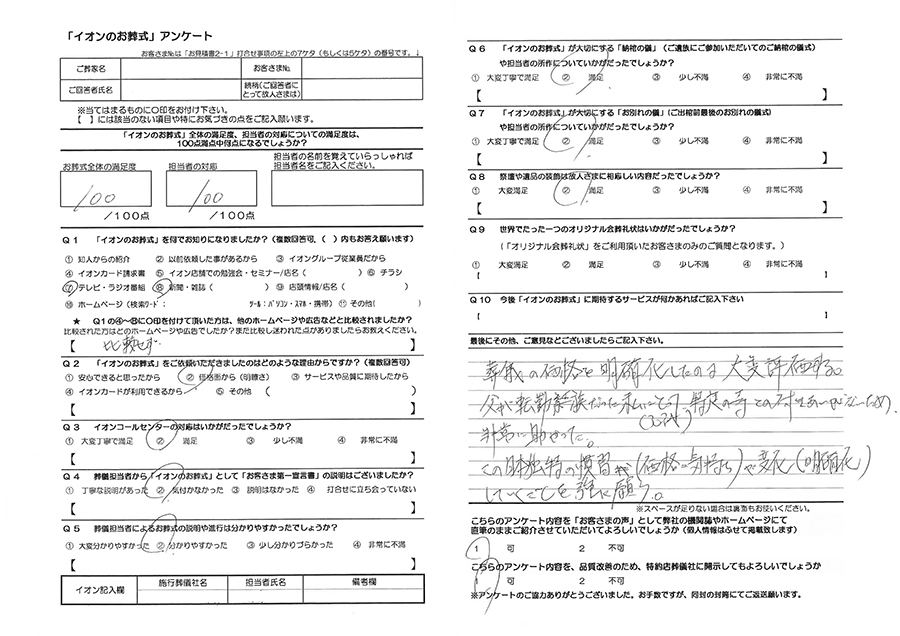 「イオンのお葬式」アンケート
お客さま№は「お見積書2-1」打合せ事項の左上の7ケタ（もしくは5ケタ）の番号です。↓
ご葬家名 お客さま№
ご回答者氏名 続柄（ご回答者にとって故人さまは）
※当てはまるものに○印をお付け下さい。
【　】には該当のない項目や特にお気づきの点をご記入願います。
「イオンのお葬式」全体の満足度、担当者の対応についての満足度は、
100点満点中何点になるでしょうか？
お葬式全体の満足度 担当者の対応 担当者の名前を覚えていらっしゃれば
担当者名をご記入ください。
100 100
/100点 /100点
Q1 「イオンのお葬式」を何でお知りになりましたか？（複数回答可。（　）内もお答え願います）
① 知人からの紹介 ② 以前依頼した事があるから ③ イオングループ従業員だから
④ イオンカード請求書 ⑤ イオン店舗での勉強会・セミナー/店名（　） ⑥ チラシ
⑦ テレビ・ラジオ番組 ⑧ 新聞・雑誌（　） ⑨ 店頭情報/店名（　）
⑩ ホームページ（検索ワード： ツール：パソコン・スマホ・携帯） ⑪ その他（　）
★ Q1の④～⑧に○印を付けて頂いた方は、他のホームページや広告などと比較されましたか？
比較された方はどのホームページや広告でしたか？また比較し迷われた点がありましたらお教えください。
【 比較せず 】
Q2 「イオンのお葬式」をご依頼いただきましたのはどのような理由からですか？（複数回答可）
① 安心できると思ったから ② 価格面から（明瞭さ） ③ サービスや品質に期待したから
④ イオンカードが利用できるから ⑤ その他（　）
【　】
Q3 イオンコールセンターの対応はいかがだったでしょうか？
① 大変丁寧で満足 ② 満足 ③ 少し不満 ④ 非常に不満
【　】
Q4 葬儀担当者から「イオンのお葬式」として「お客さま第一宣言書」の説明はございましたか？
① 丁寧な説明があった ② 気付かなかった ③ 説明はなかった ④ 打合せに立ち会っていない
【　】
Q5 葬儀担当者によるお葬式の説明や進行は分かりやすかったでしょうか？
① 大変分かりやすかった ② 分かりやすかった ③ 少し分かりづらかった ④ 非常に不満
【　】
イオン記入欄 施行葬儀社名 担当者氏名 備考欄
Q6 「イオンのお葬式」が大切にする「納棺の儀」（ご遺族にご参加いただいてのご納棺の儀式）
や担当者の所作についていかがだったでしょうか？
① 大変丁寧で満足 ② 満足 ③ 少し不満 ④ 非常に不満
【　】
Q7 「イオンのお葬式」が大切にする「お別れの儀」（ご出棺前最後のお別れの儀式）
や担当者の所作についていかがだったでしょうか？
① 大変丁寧で満足 ② 満足 ③ 少し不満 ④ 非常に不満
【　】
Q8 祭壇や遺品の装飾は故人さまに相応しい内容だったでしょうか？
① 大変満足 ② 満足 ③ 少し不満 ④ 非常に不満
【　】
Q9 世界でたった一つのオリジナル会葬礼状はいかがだったでしょうか？
（「オリジナル会葬礼状」をご利用頂いたお客さまのみのご質問となります。）
① 大変満足 ② 満足 ③ 少し不満 ④ 非常に不満
【　】
Q10 今後「イオンのお葬式」に期待するサービスが何かあればご記入下さい
【　】
最後にその他、ご意見などございましたらご記入下さい。
葬儀の価格を明確化したのは大変評価する。
父が転勤家族だった私にとり、特定の寺との付き合いがないため、
非常に助かった。
この日本独特の慣習が（価格＝気持ち）が変化（明確化）
していくことを強く願う。
※スペースが足りない場合は裏面もお使いください。
こちらのアンケート内容を「お客さまの声」として弊社の機関誌やホームページにて
直筆のままご紹介させていただいてよろしいでしょうか（個人情報はふせて掲載致します）
1 可 2 不可
こちらのアンケート内容を、品質改善のため、特約店葬儀社に開示してもよろしいでしょうか
1 可 2 不可
※アンケートのご協力ありがとうございました。お手数ですが、同封の封筒にてご返送願います。